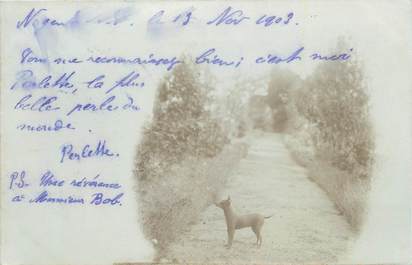 Nogent s. M. le 13 Nov 1903.
Vous me reconnaissez bien; c'est moi
Perlette, la plus
belle perle du
monde.
Perlette.
P.S. Une révérence
à Monsieur Bob.